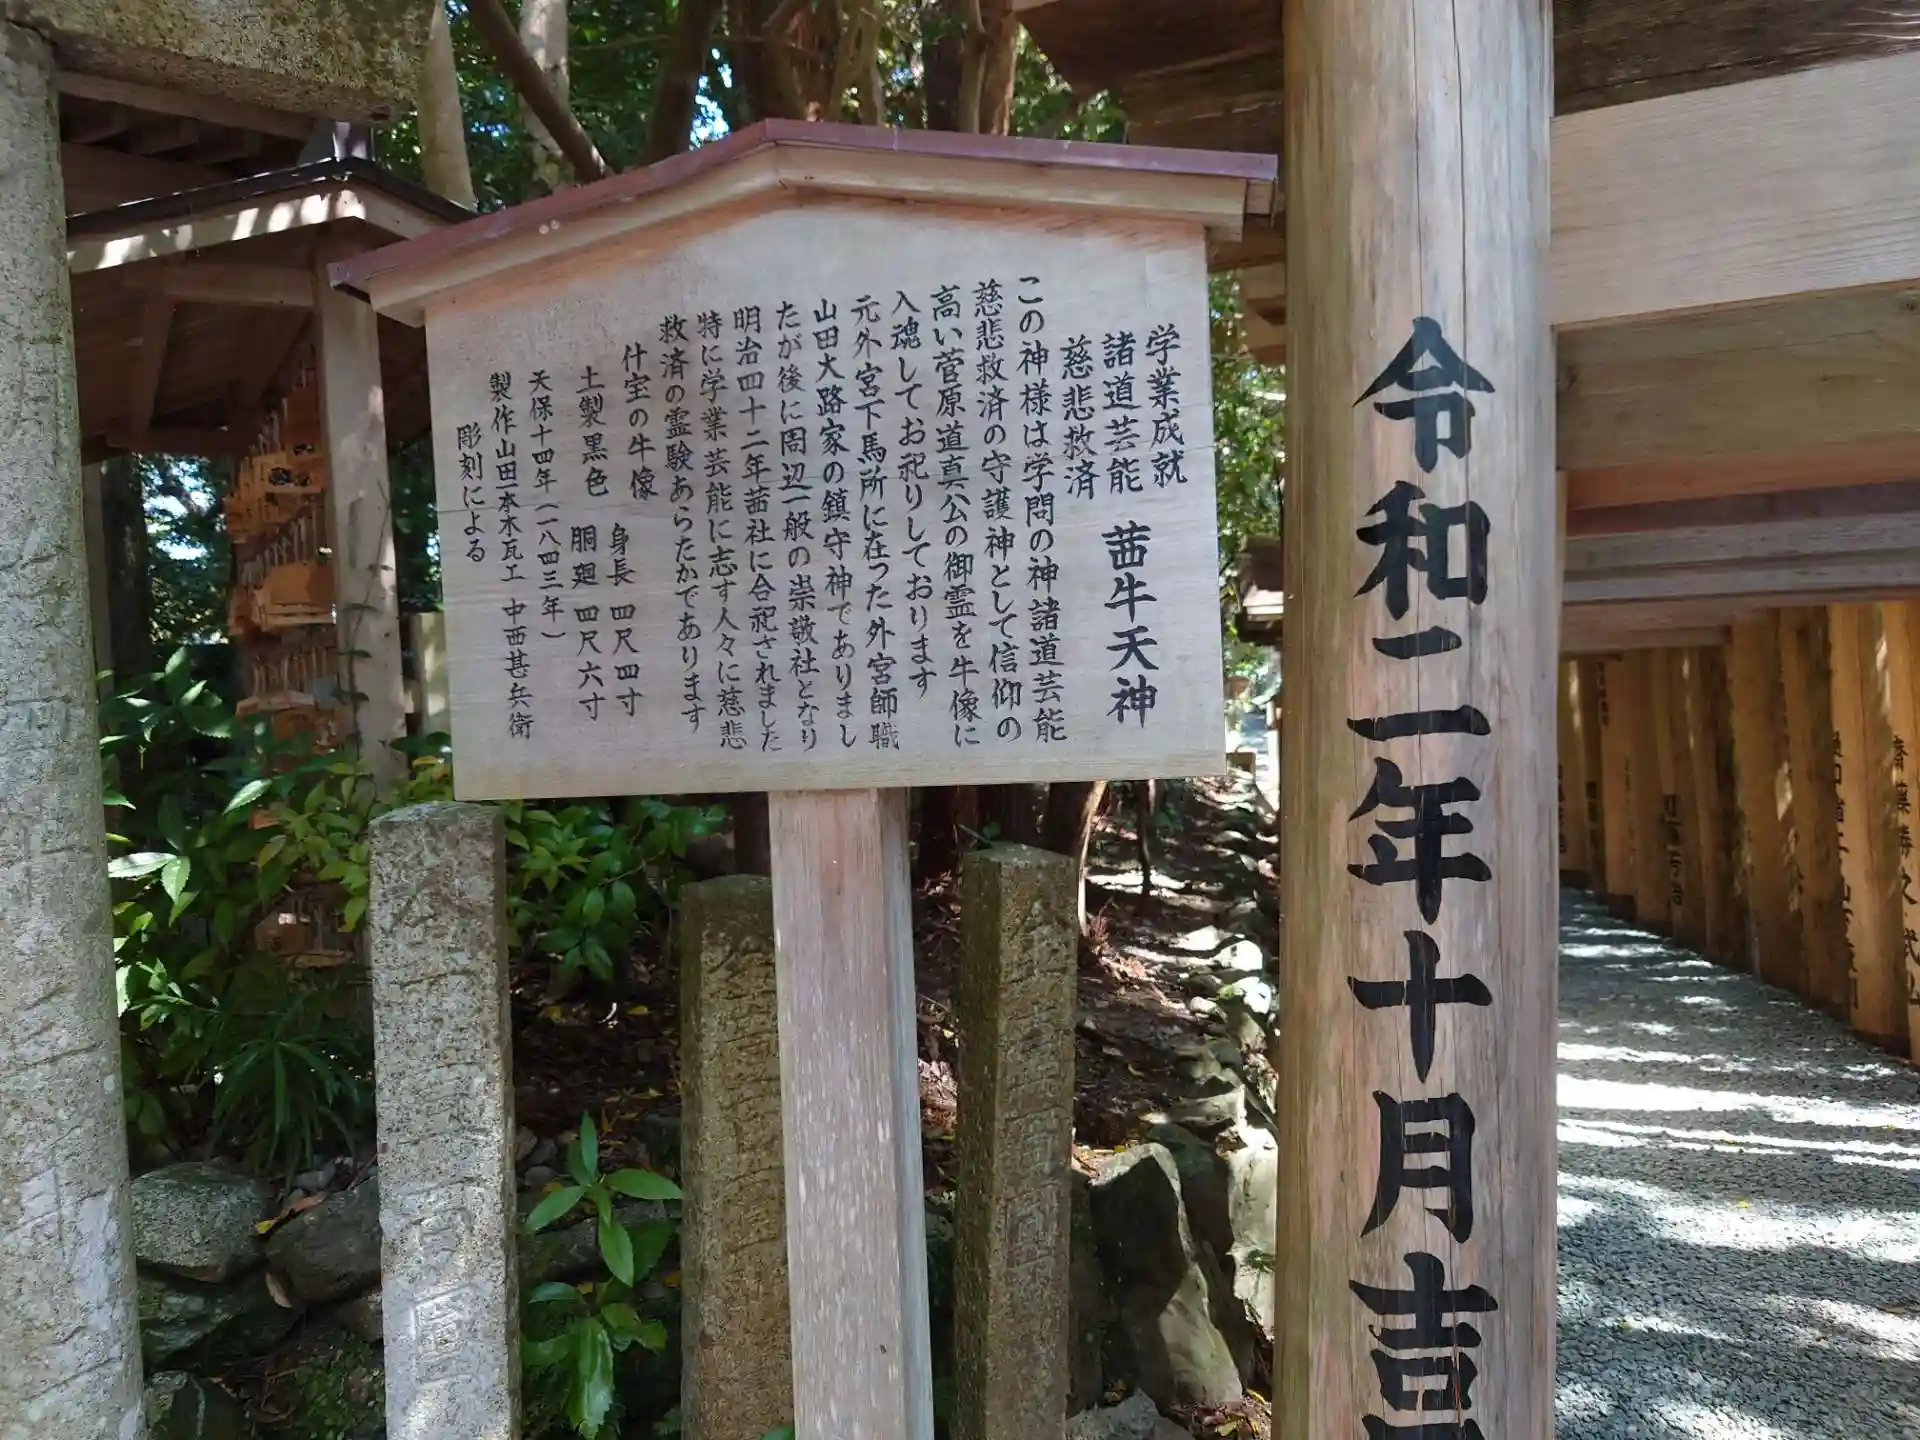 令和二年十月吉
学業成就
諸道芸能　茜牛天神
慈悲救済
この神様は学問の神諸道芸能
慈悲救済の守護神として信仰の
高い菅原道真公の御霊を牛像に
入魂してお祀りしております
元外宮下馬所に在った外宮師職
山田大路家の鎮守神でありまし
たが後に周辺一般の崇敬社となり
明治四十二年茜社に合祀されました
特に学業芸能に志す人々に慈悲
救済の霊験あらたかであります
什宝の牛像　身長 四尺四寸
土製黒色　胴廻 四尺六寸
天保十四年（一八四三年）
製作山田一本木瓦工 中西甚兵衛
彫刻による